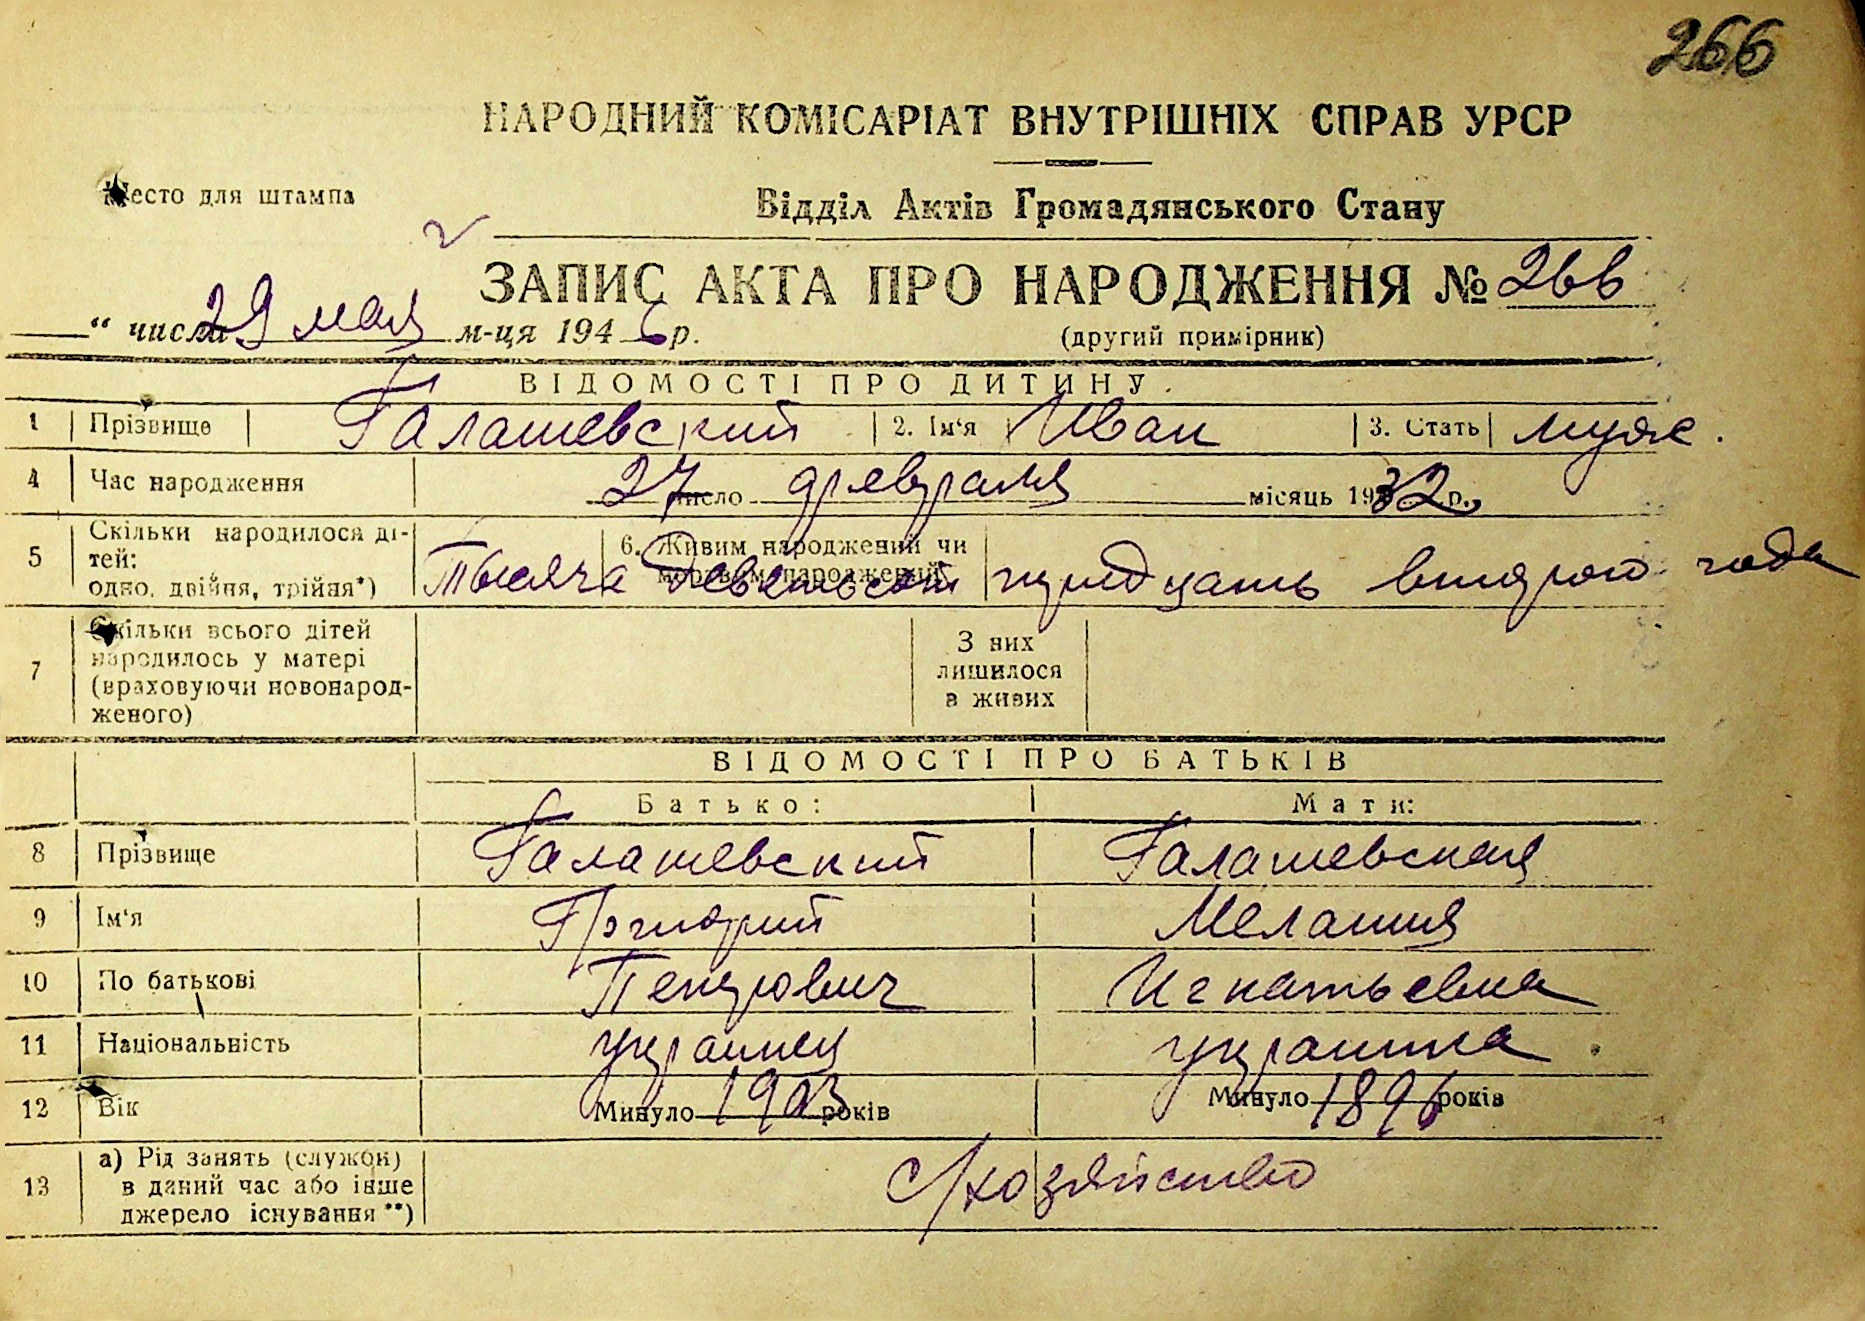 266
НАРОДНИЙ КОМІСАРІАТ ВНУТРІШНІХ СПРАВ УРСР
Место для штампа
Відділ Актів Громадянського Стану
ЗАПИС АКТА ПРО НАРОДЖЕННЯ № 266
“ числа 29 мая м-ця 1946 р.
(другий примірник)
ВІДОМОСТІ ПРО ДИТИНУ.
1 Прізвище Галашевский 2. Ім'я Иван 3. Стать муж.
4 Час народження 27 число февраля місяць 1932 р.
5 Скільки народилося ді-
тей:
одно, двійня, трійня*)
6. Живим народжений чи
мертвим народжений
Тысяча девятьсот тридцать второго года
7 Скільки всього дітей
народилось у матері
(враховуючи новонарод-
женого)
З них
лишилося
в живих
ВІДОМОСТІ ПРО БАТЬКІВ
Батько: Мати:
8 Прізвище Галашевский Галашевская
9 Ім'я Григорий Мелания
10 По батькові Петрович Игнатьевна
11 Національність украинец украинка
12 Вік Минуло 1903 років Минуло 1896 років
13 а) Рід занять (служби)
в даний час або інше
джерело існування**)
с/хозяйство